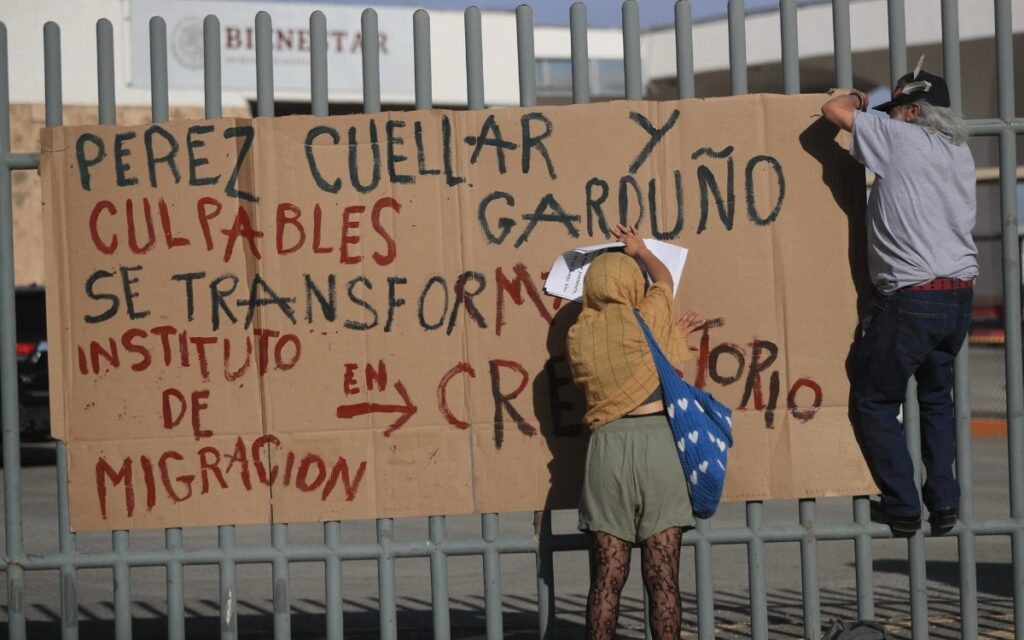 BIENESTAR
PEREZ CUELLAR Y
GARDUÑO
CULPABLES
SE TRANSFORM
INSTITUTO
DE EN → CRE TORIO
MIGRACION